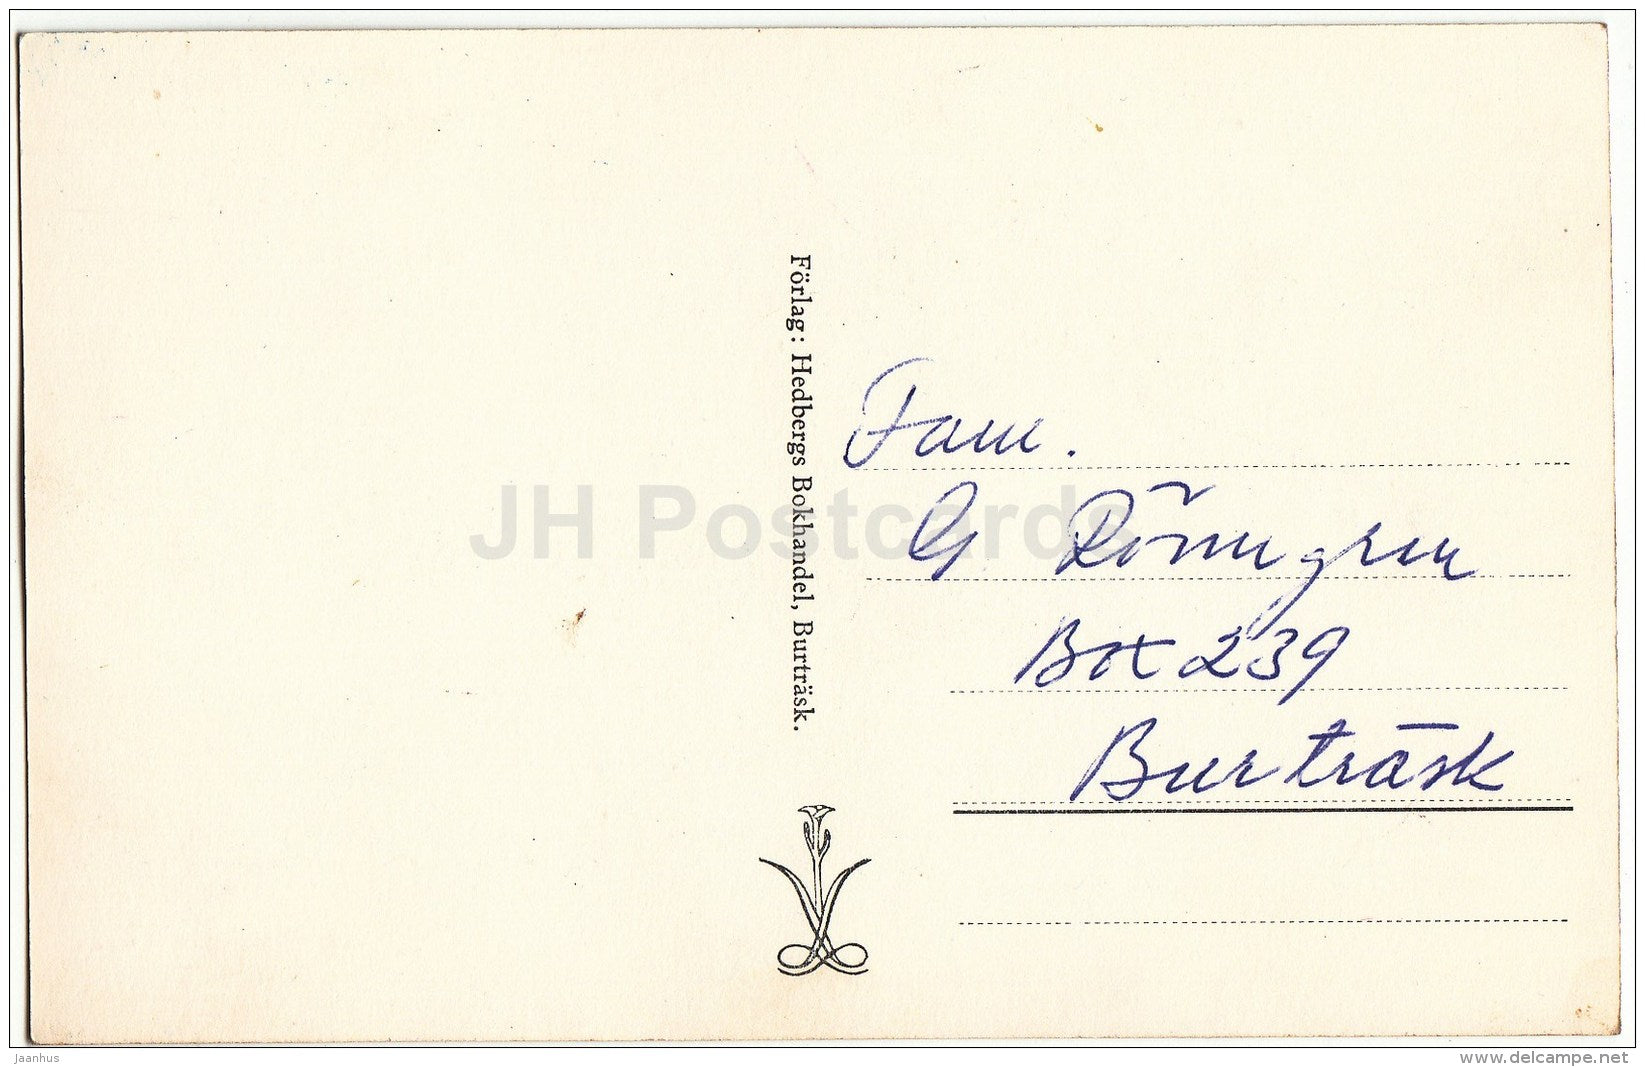 Förlag: Hedbergs Bokhandel, Burträsk.
Fam.
G Rönngren
Box 239
Burträsk
JH Postcards
jaanhus
www.delcampe.net